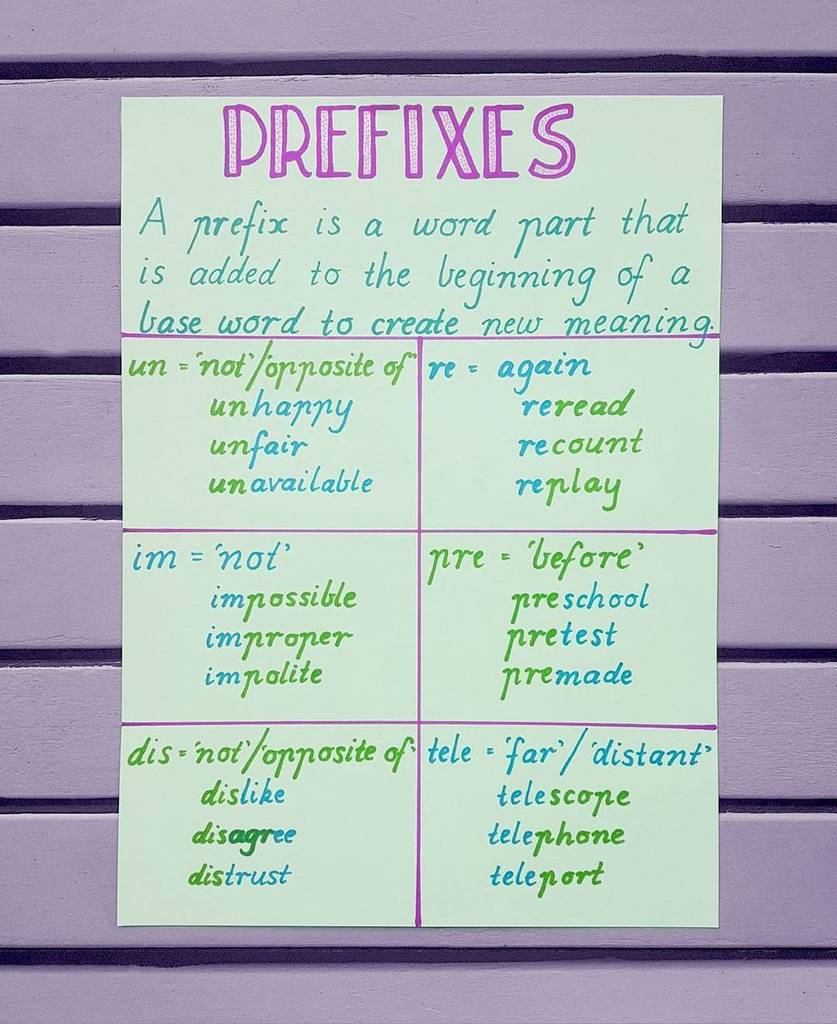 PREFIXES
A prefix is a word part that
is added to the beginning of a
base word to create new meaning.
un = 'not'/'opposite of'
unhappy
unfair
unavailable
re = again
reread
recount
replay
im = 'not'
impossible
improper
impolite
pre = 'before'
preschool
pretest
premade
dis = 'not'/'opposite of'
dislike
disagree
distrust
tele = 'far'/'distant'
telescope
telephone
teleport